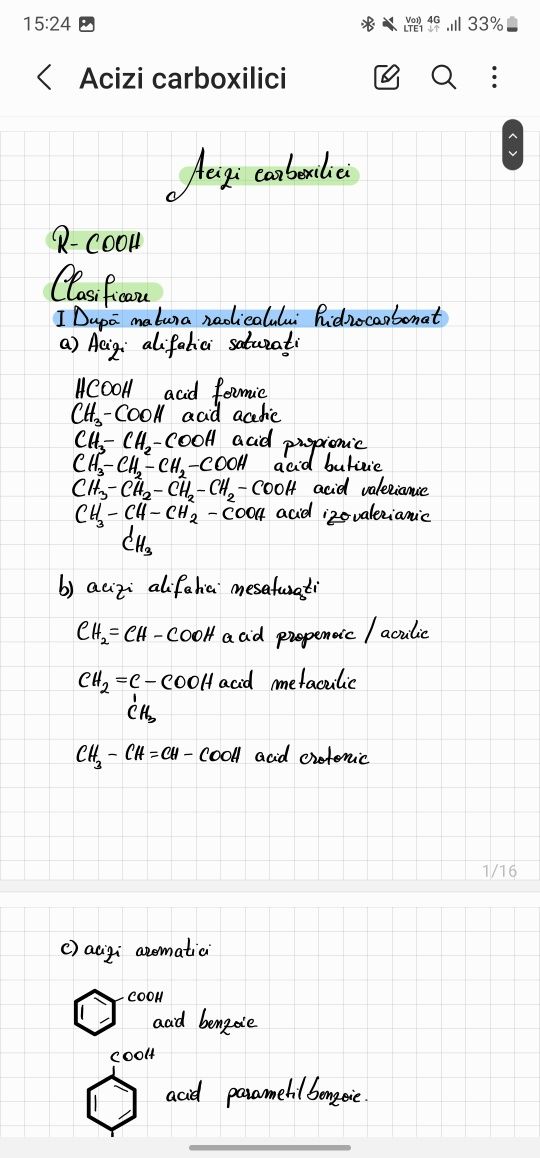 15:24 Vo)) LTE1 4G 33%
Acizi carboxilici
Acizi carboxilici
R-COOH
Clasificare
I După natura radicalului hidrocarbonat
a) Acizi alifatici saturați
HCOOH acid formic
CH₃-COOH acid acetic
CH₃-CH₂-COOH acid propionic
CH₃-CH₂-CH₂-COOH acid butiric
CH₃-CH₂-CH₂-CH₂-COOH acid valerianic
CH₃-CH-CH₂-COOH acid izovalerianic
CH₃
b) acizi alifatici nesaturați
CH₂=CH-COOH acid propenoic / acrilic
CH₂=C-COOH acid metacrilic
CH₃
CH₃-CH=CH-COOH acid crotonic
1/16
c) acizi aromatici
COOH
acid benzoic
COOH
acid parametilbenzoic.